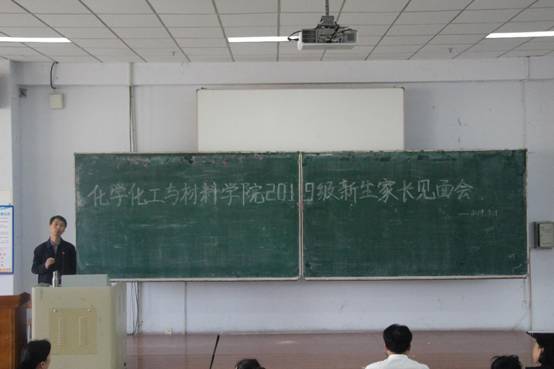 化学化工与材料学院2019级新生家长见面会